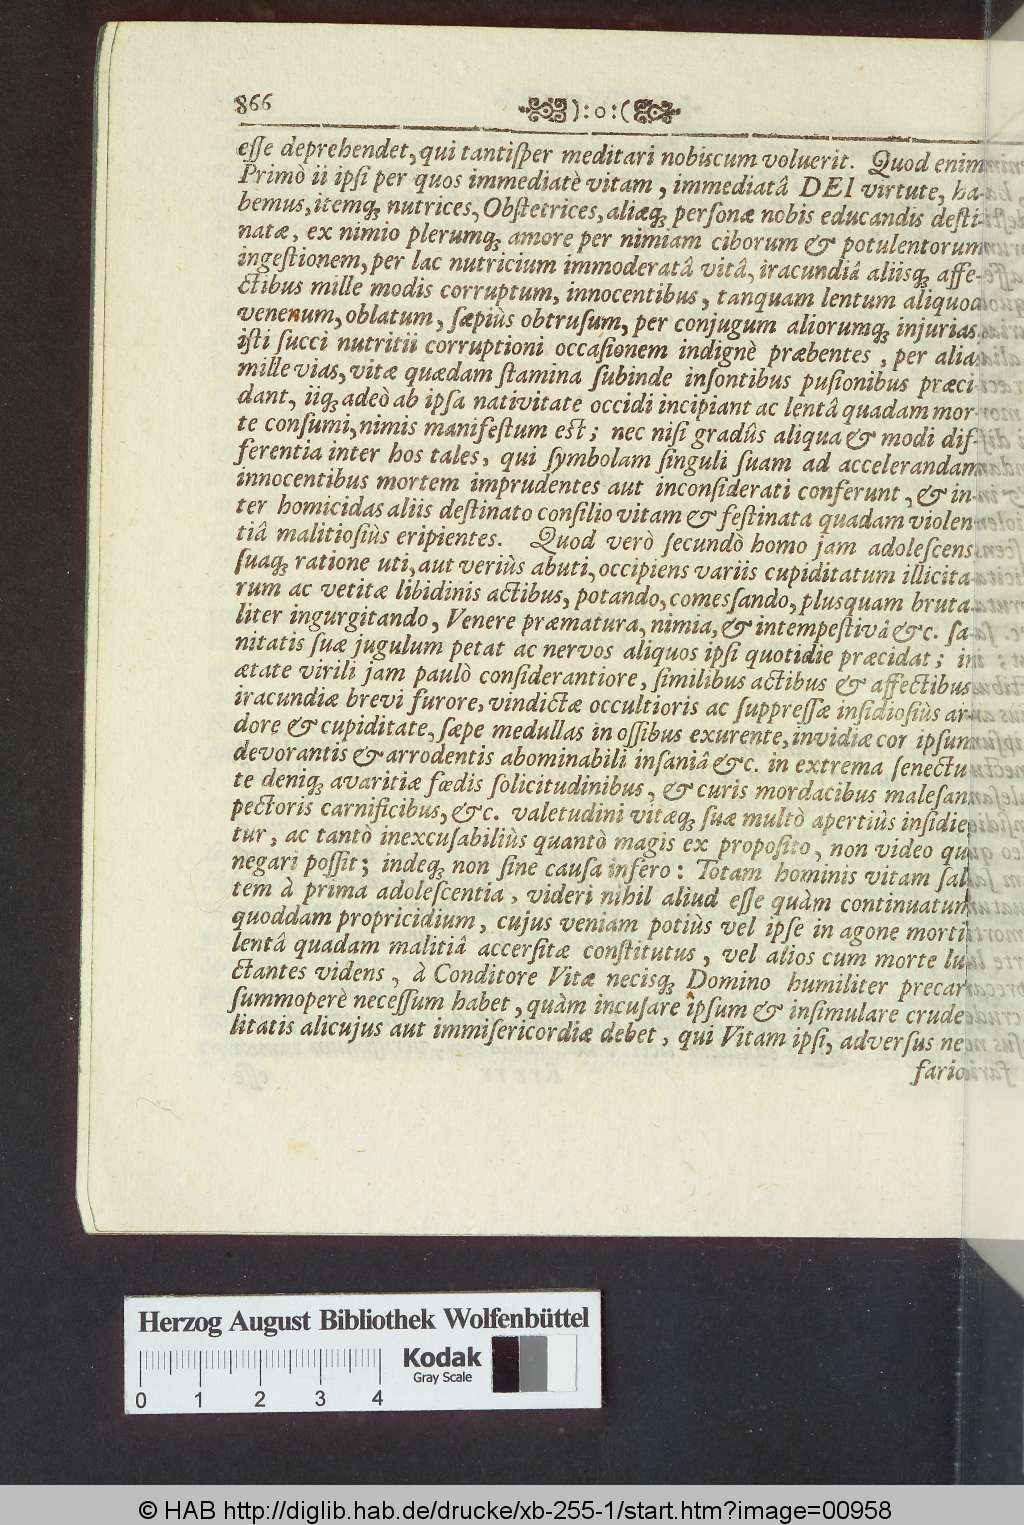 866 ):o:(
esse deprehendet, qui tantisper meditari nobiscum voluerit. Quod enim
Primò ii ipsi per quos immediatè vitam, immediatâ DEI virtute, ha-
bemus, itemq; nutrices, Obstetrices, aliæq; personæ nobis educandis desti-
natæ, ex nimio plerumq; amore per nimiam ciborum & potulentorum
ingestionem, per lac nutricium immoderatâ vitâ, iracundiâ aliisq; affe-
ctibus mille modis corruptum, innocentibus, tanquam lentum aliquod
venenum, oblatum, sæpiùs obtrusum, per conjugum aliorumq; injurias
isti succi nutritii corruptioni occasionem indignè præbentes, per alia
mille vias, vitæ quædam stamina subinde insontibus pusionibus præci-
dant, iiq; adeò ab ipsa nativitate occidi incipiant ac lentâ quadam mor-
te consumi, nimis manifestum est; nec nisi gradûs aliqua & modi dif-
ferentia inter hos tales, qui symbolam singuli suam ad accelerandam
innocentibus mortem imprudentes aut inconsiderati conferunt, & in-
ter homicidas aliis destinato consilio vitam & festinata quadam violen-
tiâ malitiosiùs eripientes. Quod verò secundò homo jam adolescens
suaq; ratione uti, aut veriùs abuti, occipiens variis cupiditatum illicita-
rum ac vetitæ libidinis actibus, potando, comessando, plusquam bruta-
liter ingurgitando, Venere præmatura, nimia, & intempestivâ &c. sa-
nitatis suæ jugulum petat ac nervos aliquos ipsi quotidie præcidat; in
ætate virili jam paulò considerantiore, similibus actibus & affectibus
iracundiæ brevi furore, vindictæ occultioris ac suppressæ insidiosiùs ar-
dore & cupiditate, sæpe medullas in ossibus exurente, invidiæ cor ipsum
devorantis & arrodentis abominabili insaniâ &c. in extrema senectu
te deniq; avaritiæ fœdis solicitudinibus, & curis mordacibus malesan
pectoris carnificibus, &c. valetudini vitæq; suæ multò apertiùs insidie
tur, ac tantò inexcusabiliùs quantò magis ex proposito, non video qu
negari possit; indeq; non sine causa infero: Totam hominis vitam sal
tem à prima adolescentia, videri nihil aliud esse quàm continuatum
quoddam propricidium, cujus veniam potiùs vel ipse in agone morti
lentâ quadam malitiâ accersitæ constitutus, vel alios cum morte lu
ctantes videns, à Conditore Vitæ necisq; Domino humiliter precar
summoperè necessum habet, quàm incusare ipsum & insimulare crude
litatis alicujus aut immisericordiæ debet, qui Vitam ipsi, adversus ne
fario
Herzog August Bibliothek Wolfenbüttel
Kodak
Gray Scale
0 1 2 3 4
© HAB http://diglib.hab.de/drucke/xb-255-1/start.htm?image=00958